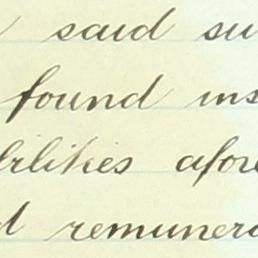 said su
found ins
bilities afore
d remunera